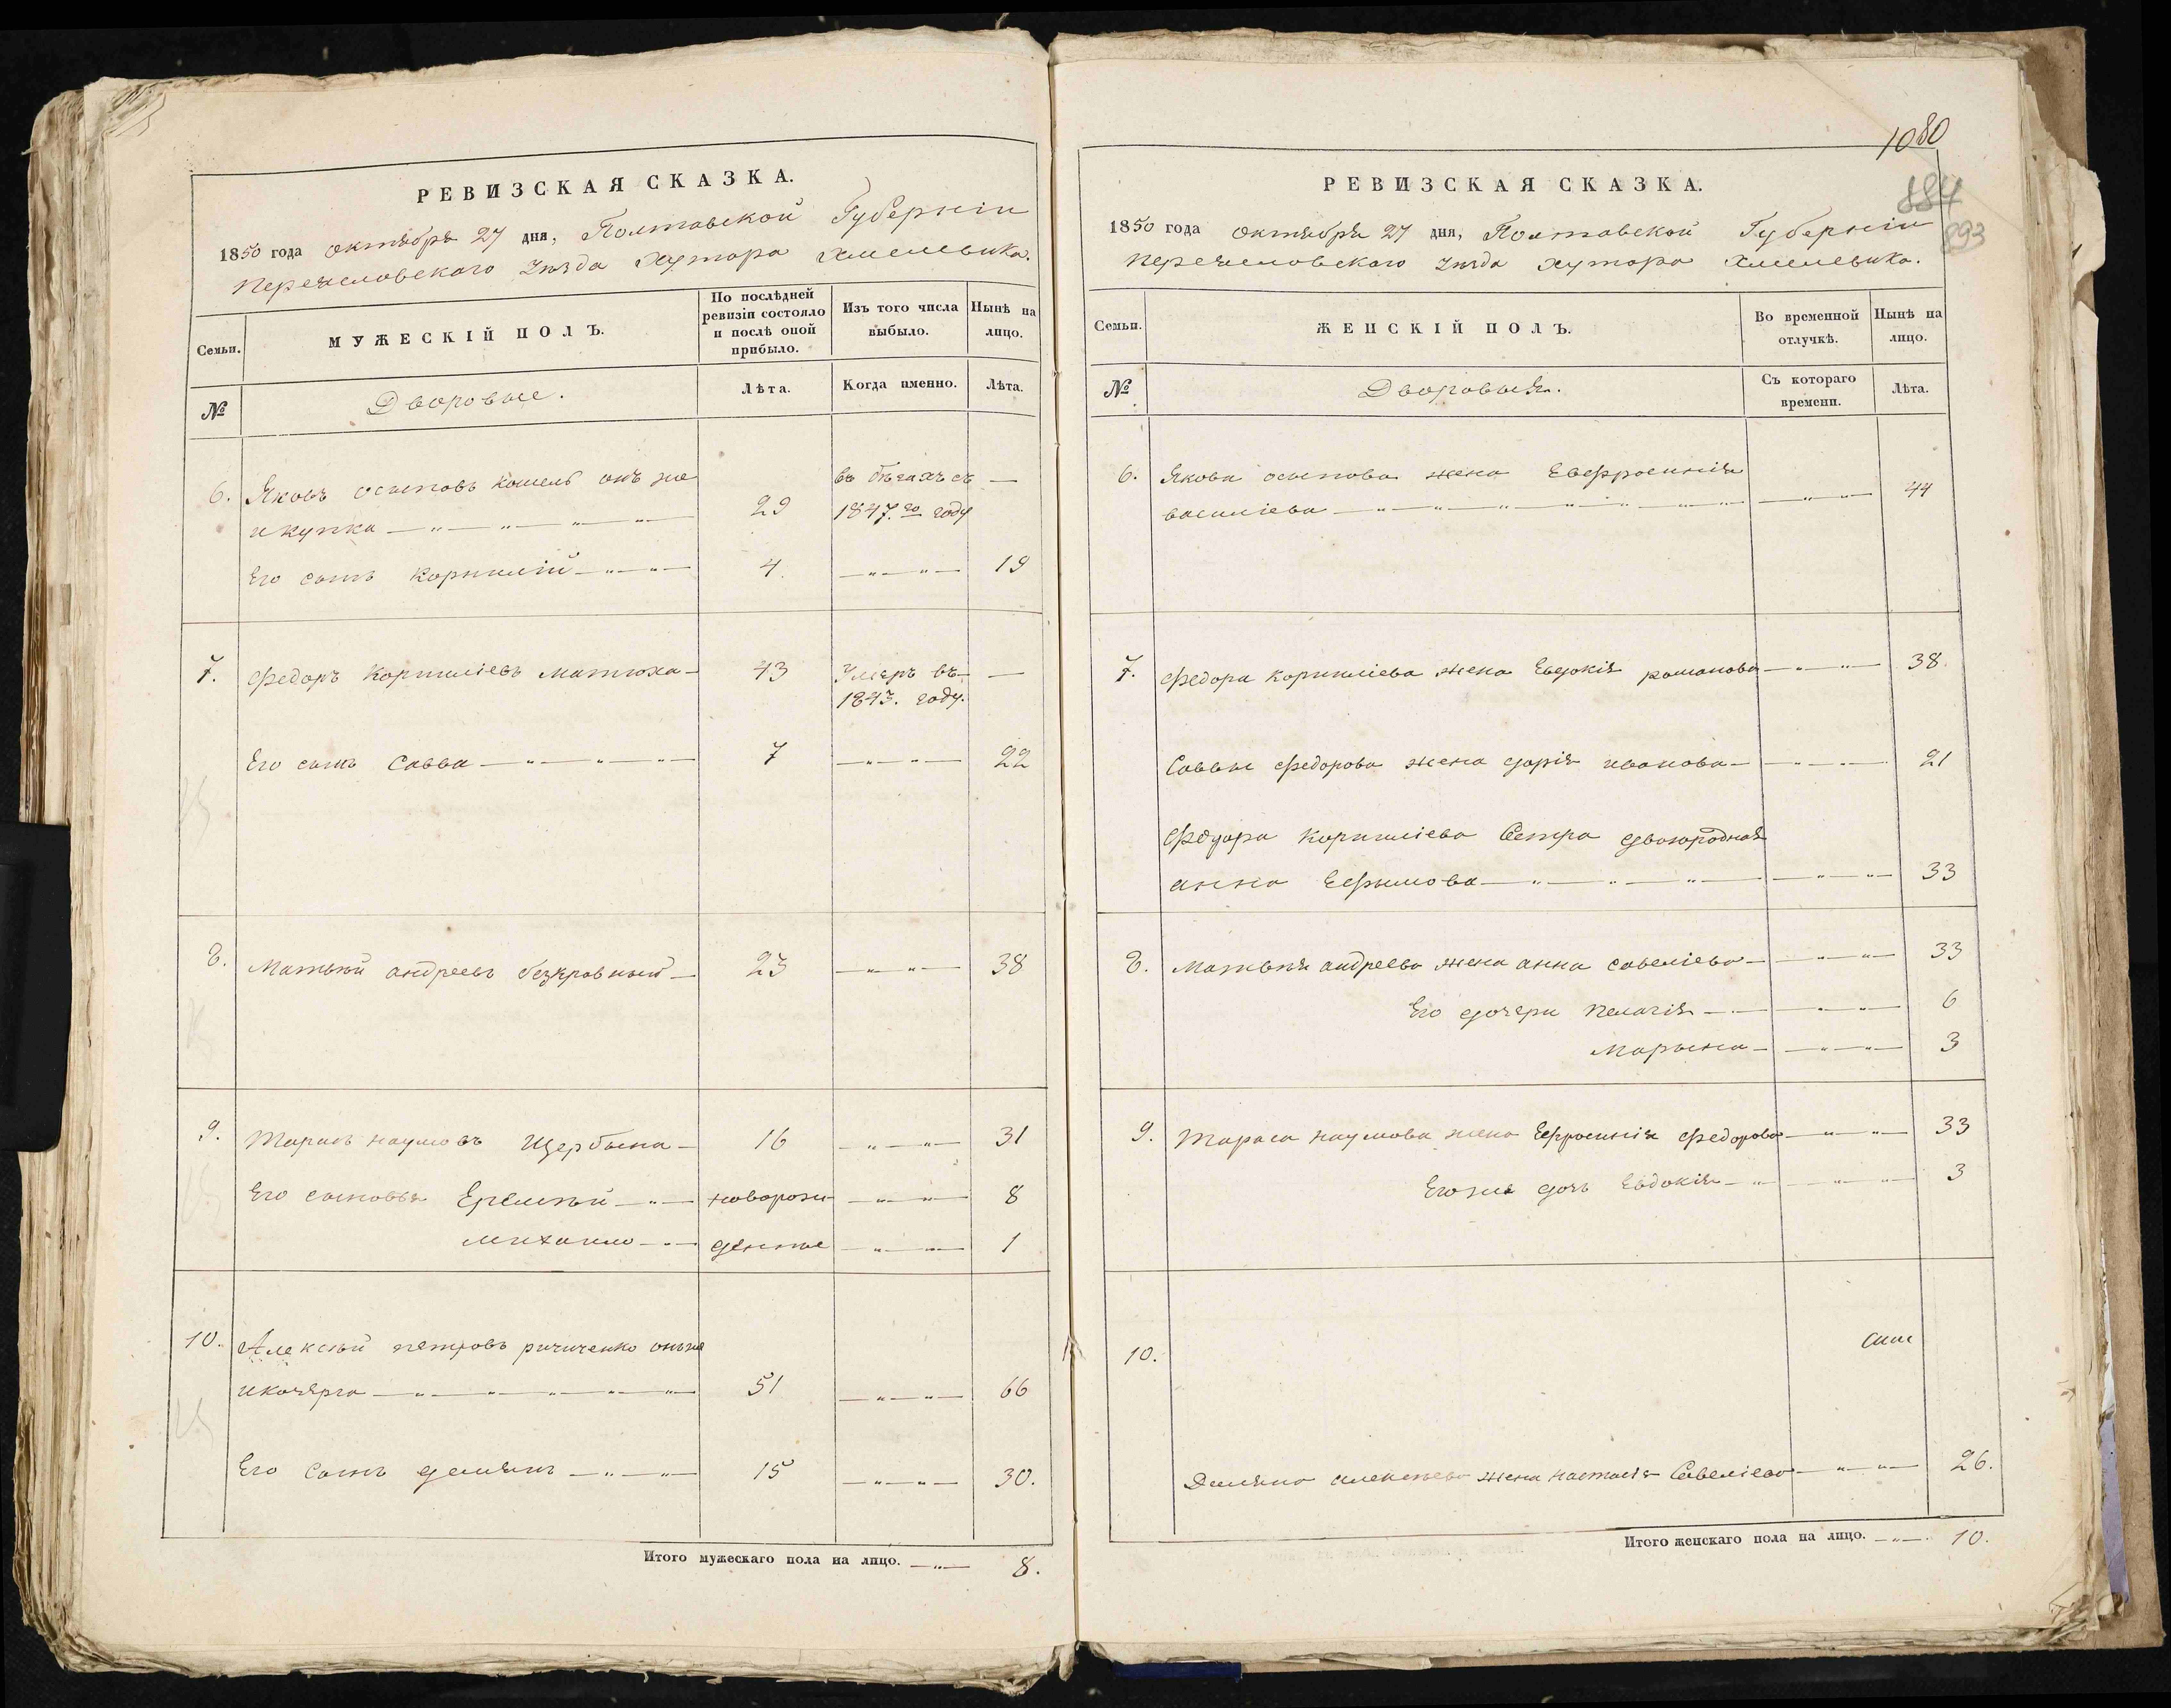 РЕВИЗСКАЯ СКАЗКА.
1850 года октября 27 дня, Полтавской Губерніи
Переяславского Уѣзда Хутора Хмелевика.
Семьи.
МУЖЕСКІЙ ПОЛЪ.
По послѣдней ревизіи состояло и послѣ оной прибыло.
Изъ того числа выбыло.
Нынѣ на лицо.
№
Дворовые.
Лѣта.
Когда именно.
Лѣта.
6. Яковъ осиповъ Кошель онъ же
въ бѣгахъ съ —
икупка 29 1847.го году
Его сынъ Корнилій 4. 19
7. Федоръ Корниліевъ Матюха 43 Умеръ въ —
1843. году.
Его сынъ Савва 7 22
8. Матвѣй андреевъ безкровный 23 38
9. Тарасъ наумовъ Щербына 16 31
Его сыновья Еремѣй новорож 8
михаило денные 1
10. Алексѣй петровъ ричиченко онъже
икочерга 51 66
Его Сынъ демьянъ 15 30.
Итого мужескаго пола на лицо. 8.
1080
884
893
РЕВИЗСКАЯ СКАЗКА.
1850 года октября 27 дня, Полтавской Губерніи
Переяславского Уѣзда хутора Хмелевика.
Семьи.
ЖЕНСКІЙ ПОЛЪ.
Во временной отлучкѣ.
Нынѣ на лицо.
№
Дворовыя.
Съ котораго времени.
Лѣта.
6. Якова осипова жена Евфросинія
василіева 44
7. Федора Корниліева жена Евдокія романова 38.
Саввы Федорова жена дарія иванова 21
Федора Корниліева Сестра двоюродная
анна Ефимова 33
8. Матвѣя андреева жена анна савеліева 33
Его дочери Пелагія 6
Марына 3
9. Тараса наумова жена Ефросинія Федорова 33
Егоже дочь Евдокія 3
10.
Демьяна алексѣева жена настасія Савеліева 26.
Итого женскаго пола на лицо. 10.